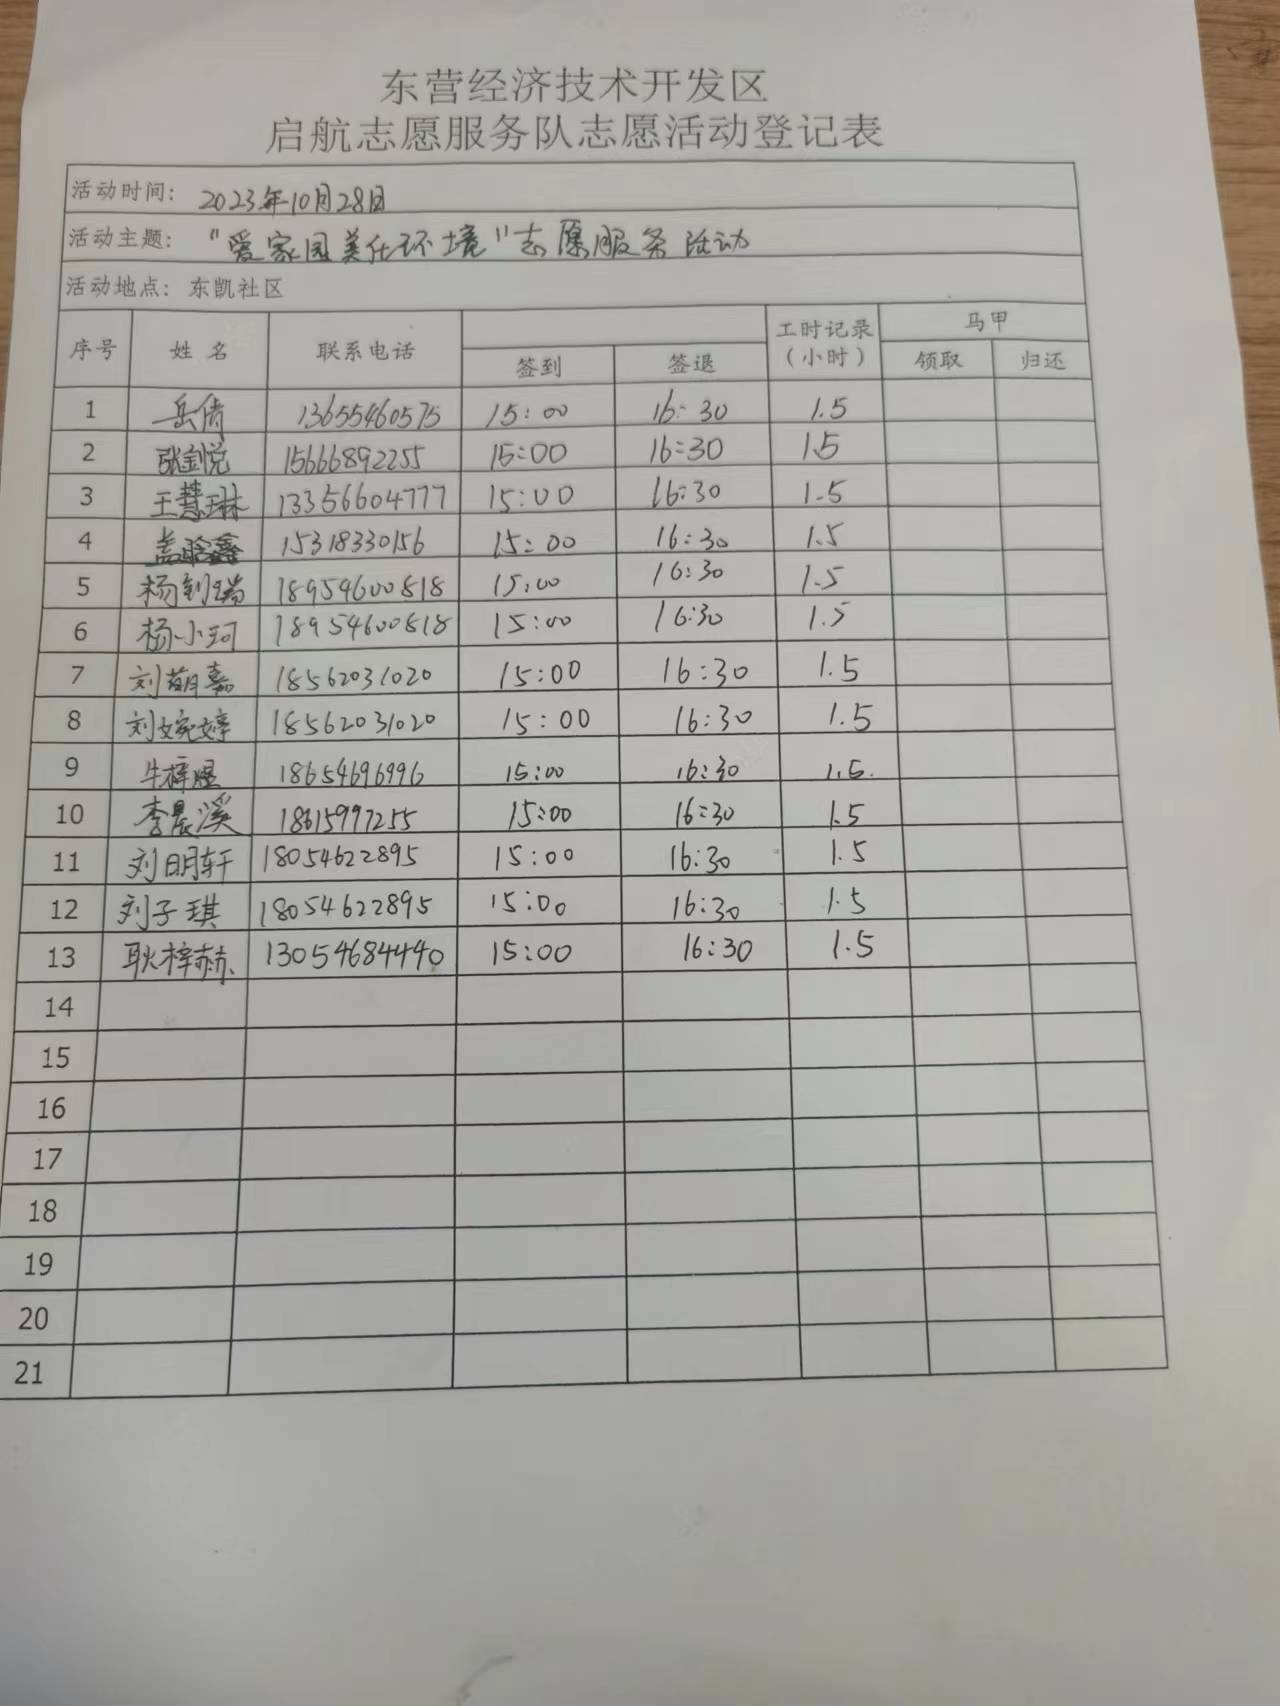 东营经济技术开发区
启航志愿服务队志愿活动登记表
活动时间: 2023年10月28日
活动主题: "爱家园美化环境"志愿服务活动
活动地点: 东凯社区
序号 姓名 联系电话 签到 签退 工时记录(小时) 马甲 领取 归还
1 岳倩 13655460575 15:00 16:30 1.5
2 张剑悦 15666892255 15:00 16:30 1.5
3 王慧琳 13356604777 15:00 16:30 1.5
4 15318330156 15:00 16:30 1.5
5 杨钊瑞 18954600818 15:00 16:30 1.5
6 杨小珂 18954600818 15:00 16:30 1.5
7 刘萌嘉 18562031020 15:00 16:30 1.5
8 刘婉婷 18562031020 15:00 16:30 1.5
9 牛梓煜 18654696996 15:00 16:30 1.5.
10 李晨溪 18615997255 15:00 16:30 1.5
11 刘明轩 18054622895 15:00 16:30 1.5
12 刘子琪 18054622895 15:00 16:30 1.5
13 耿梓赫 13054684440 15:00 16:30 1.5
14
15
16
17
18
19
20
21